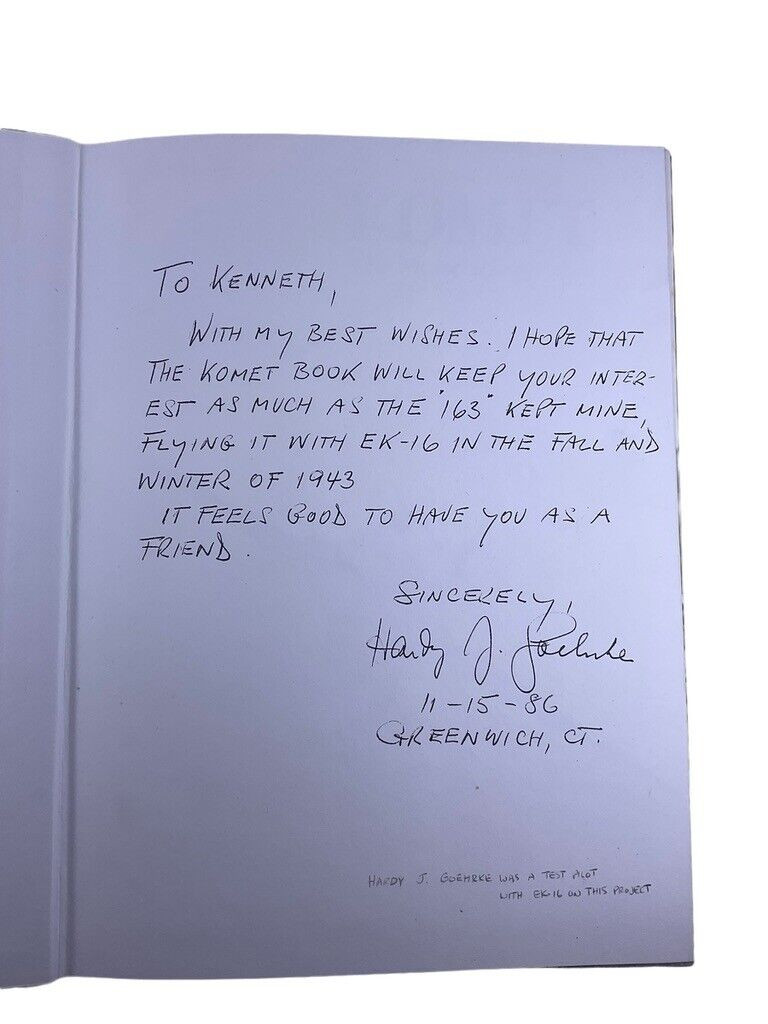 TO KENNETH,
WITH MY BEST WISHES. I HOPE THAT
THE KOMET BOOK WILL KEEP YOUR INTER-
EST AS MUCH AS THE "163" KEPT MINE,
FLYING IT WITH EK-16 IN THE FALL AND
WINTER OF 1943
IT FEELS GOOD TO HAVE YOU AS A
FRIEND.
SINCERELY,
Hardy J. Goehrke
11-15-86
GREENWICH, CT.
HARDY J. GOEHRKE WAS A TEST PILOT
WITH EK-16 ON THIS PROJECT